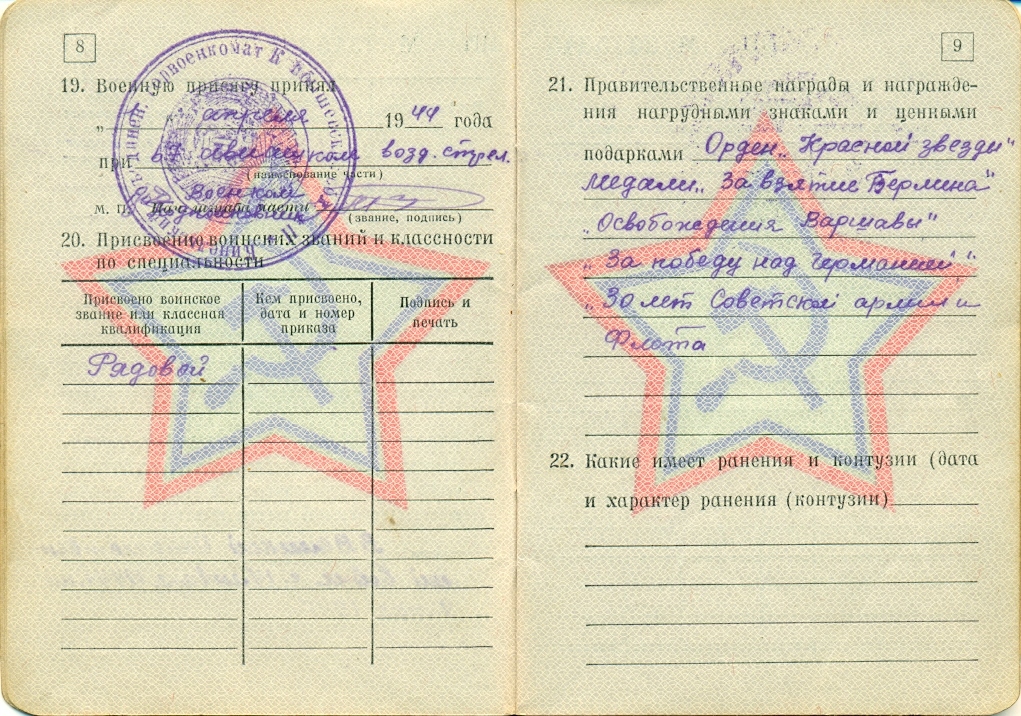 8
19. Военную присягу принял
„ апреля 1944 года
при возд. стрел.
(наименование части)
военком
М. П. Начальника части
(звание, подпись)
20. Присвоение воинских званий и классности
по специальности
Присвоено воинское звание или классная квалификация
Кем присвоено, дата и номер приказа
Подпись и печать
Рядовой
9
21. Правительственные награды и награжде-
ния нагрудными знаками и ценными
подарками Орден „Красной звезды"
Медали „За взятие Берлина"
„Освобождения Варшавы"
„За победу над Германией"
„30 лет Советской армии и
Флота
22. Какие имеет ранения и контузии (дата
и характер ранения (контузии)